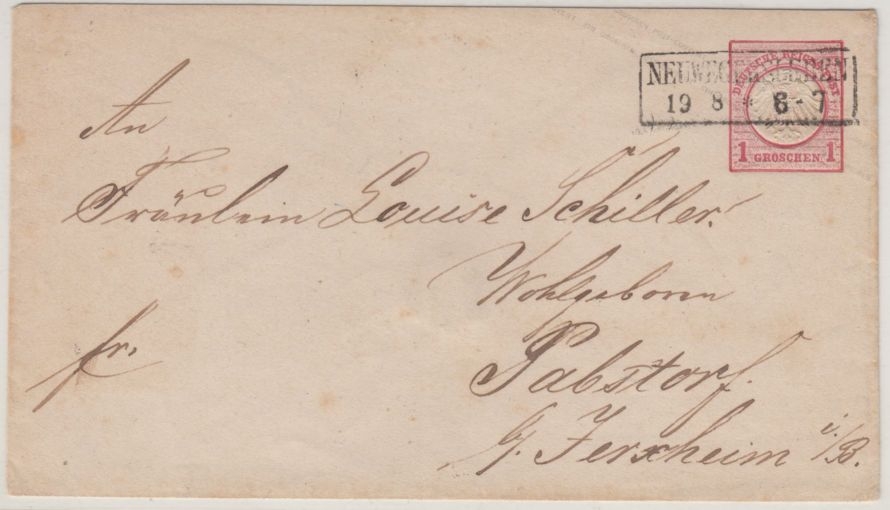 NEUWEGERSLEBEN
19 8 * 6-7
DEUTSCHE REICHS-POST
1 GROSCHEN 1
An
Fräulein Louise Schiller.
Wohlgeboren
fr.
Pabstorf.
b/. Jerxheim i./B.